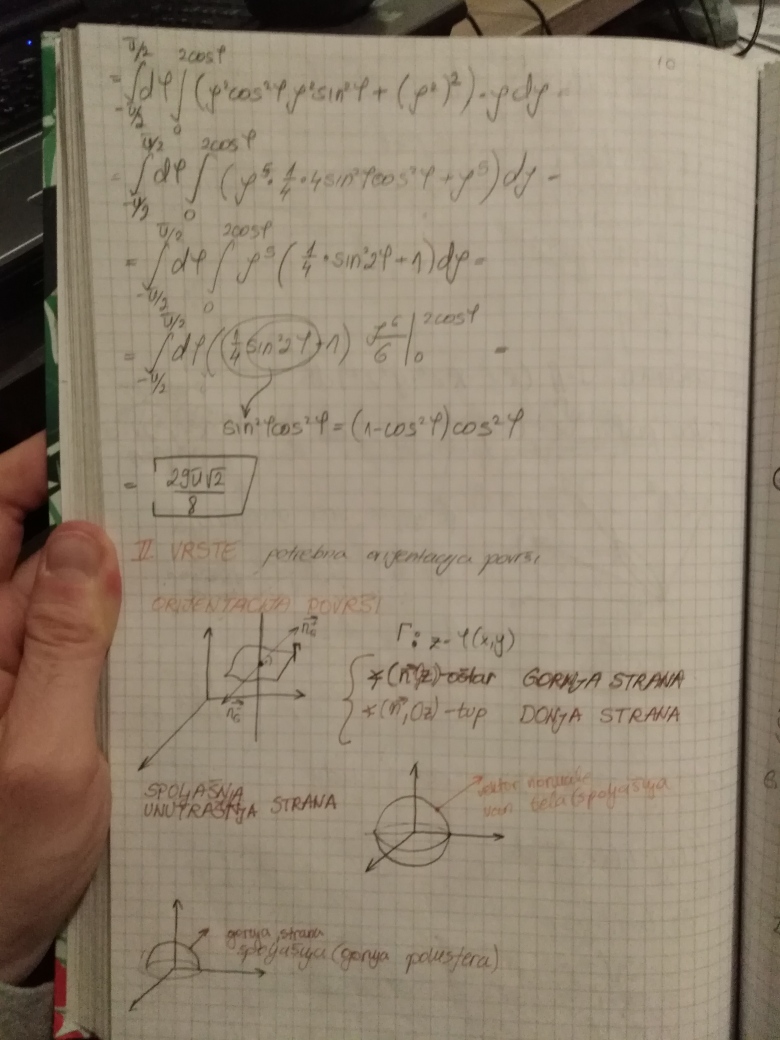 10
= ∫_{-π/2}^{π/2} dφ ∫_0^{2cosφ} (ρ²cos²φ ρ²sin²φ + (ρ²)²)·ρ dρ =
= ∫_{-π/2}^{π/2} dφ ∫_0^{2cosφ} (ρ⁵·1/4·4sin²φcos²φ + ρ⁵) dρ =
= ∫_{-π/2}^{π/2} dφ ∫_0^{2cosφ} ρ⁵ (1/4·sin²2φ + 1) dρ =
= ∫_{-π/2}^{π/2} dφ (1/4 sin²2φ + 1) ρ⁶/6 |_0^{2cosφ} =
sin²φcos²φ = (1-cos²φ)cos²φ
= 29π√2/8
II VRSTE potrebna orijentacija površi
ORIJENTACIJA POVRŠI
n⃗
Γ: z=φ(x,y)
∢(n⃗,Oz)-oštar GORNJA STRANA
n⃗
∢(n⃗,Oz)-tup DONJA STRANA
SPOLJAŠNJA
UNUTRAŠNJA STRANA
vektor normale
van tela (spoljašnja
gornja strana
spoljašnja (gornja polusfera)